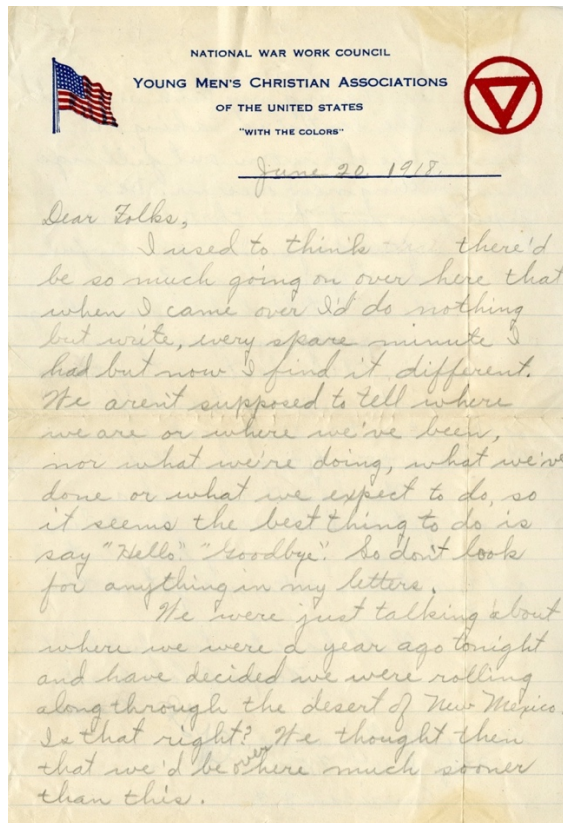 NATIONAL WAR WORK COUNCIL
YOUNG MEN'S CHRISTIAN ASSOCIATIONS
OF THE UNITED STATES
"WITH THE COLORS"
June 20 1918.
Dear Folks,
I used to think there'd
be so much going on over here that
when I came over I'd do nothing
but write, every spare minute I
had but now I find it different.
We aren't supposed to tell where
we are or where we've been,
nor what we're doing, what we've
done or what we expect to do, so
it seems the best thing to do is
say "Hello" "Goodbye". So don't look
for anything in my letters.
We were just talking about
where we were a year ago tonight
and have decided we were rolling
along through the desert of New Mexico.
Is that right? We thought then
that we'd be over here much sooner
than this.